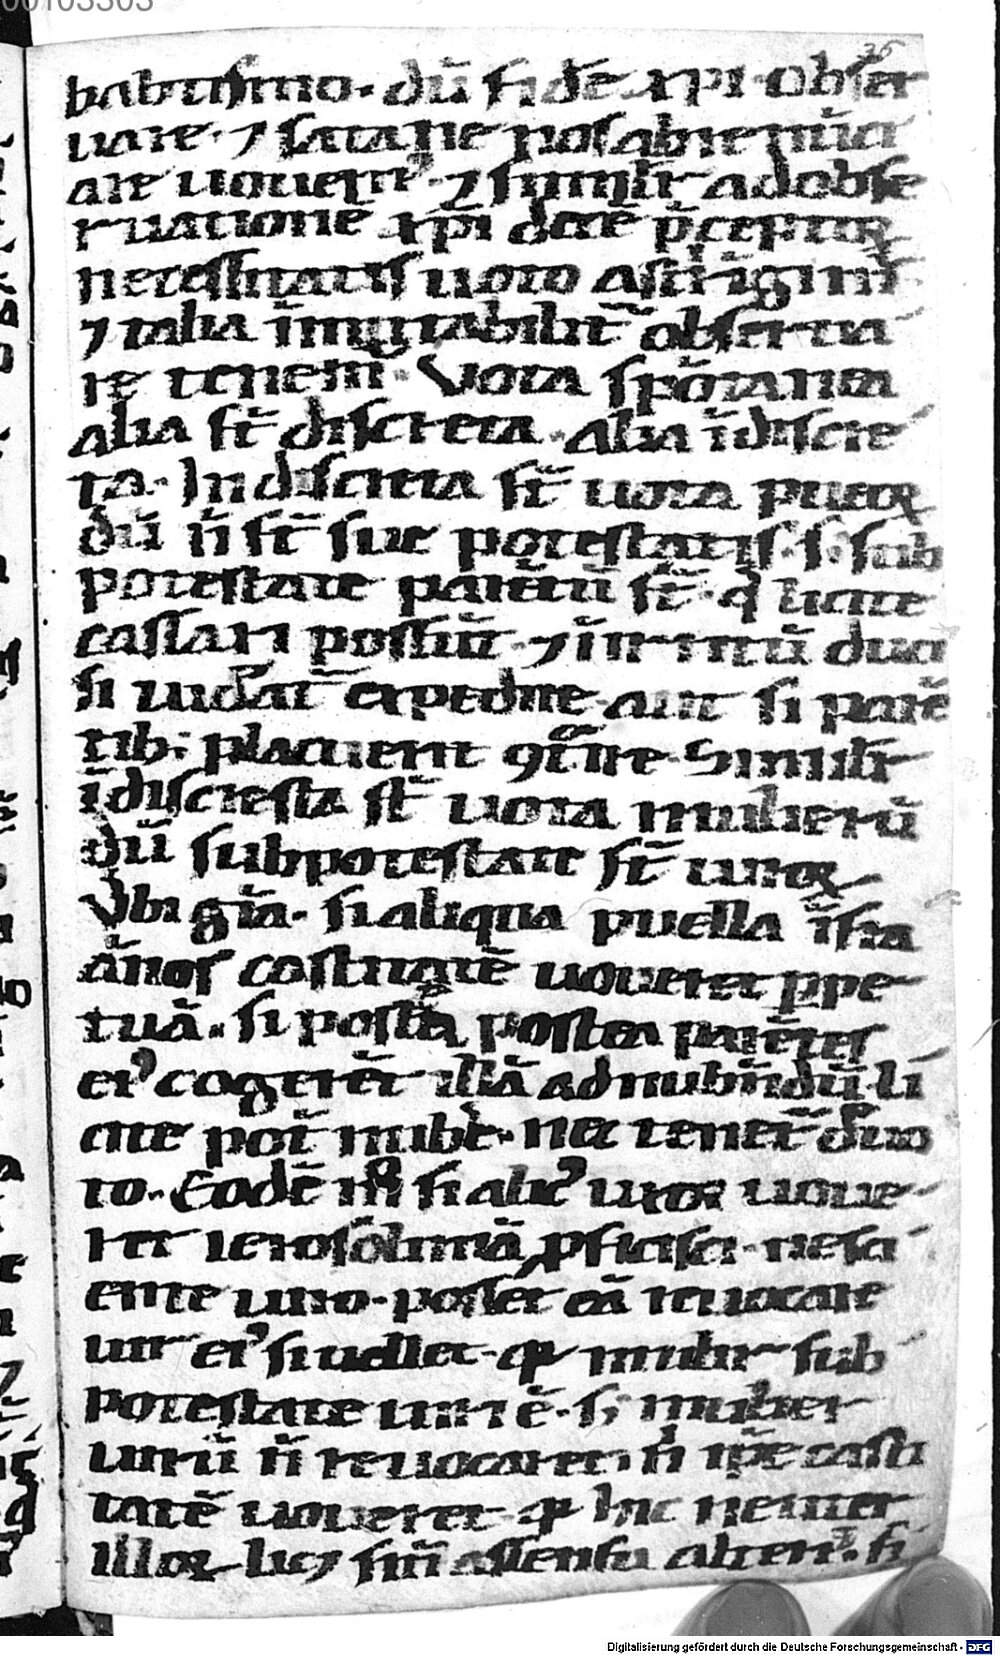 00103303
26
babtismo. dũ fidẽ xp̄i obser
uare. ⁊ satane pōpis abrenũci
are uouem᷒. ⁊ simil̃r ad obse
ruatione xp̄i
necessitatis uoto astrĩgim᷒
⁊ talia ĩmutabilit̃ obserua
re tenem᷒. Vota spõtanea
alia s̃t discreta. alia ĩdiscre
ta. Indiscreta s̃t uota pueꝝ
dũ ñ s̃t sue potestatis. s. sub
potestate parẽtũ s̃t. q̄ licite
cassari possũt. ⁊ ĩ irritũ duci
si uid̃at̃ expedire. aut si parẽ
tib; placuerit ꝯͣire. Simil̃r
ĩdiscresta s̃t uota mulierũ
dũ sub potestate s̃t uiroꝝ
Vbi gr̃a. si aliqua puella ĩfra
ãnos castitatẽ uoueret ꝑpe
tuã. si postea postea parẽtes
ei᷒ cogerẽt illã ad nubẽdũ. li
cite pot̃ nub̃e. nec tenet̃ uo
to. Eodẽ m̊ si alic᷒ uxor uoue
ret ierosolimã ꝓficisci. nesci
ente uiro. posset eã reuocare
uir ei᷒ si uellet. qͥ mulier sub
potestate uiri ẽ. s; mulier
uirũ ñ reuocaret. si ip̃e casti
tatẽ uoueret. qͥ hic neuter
illoꝝ lic; sin̄ assensu alteri᷒. si
Digitalisierung gefördert durch die Deutsche Forschungsgemeinschaft - DFG